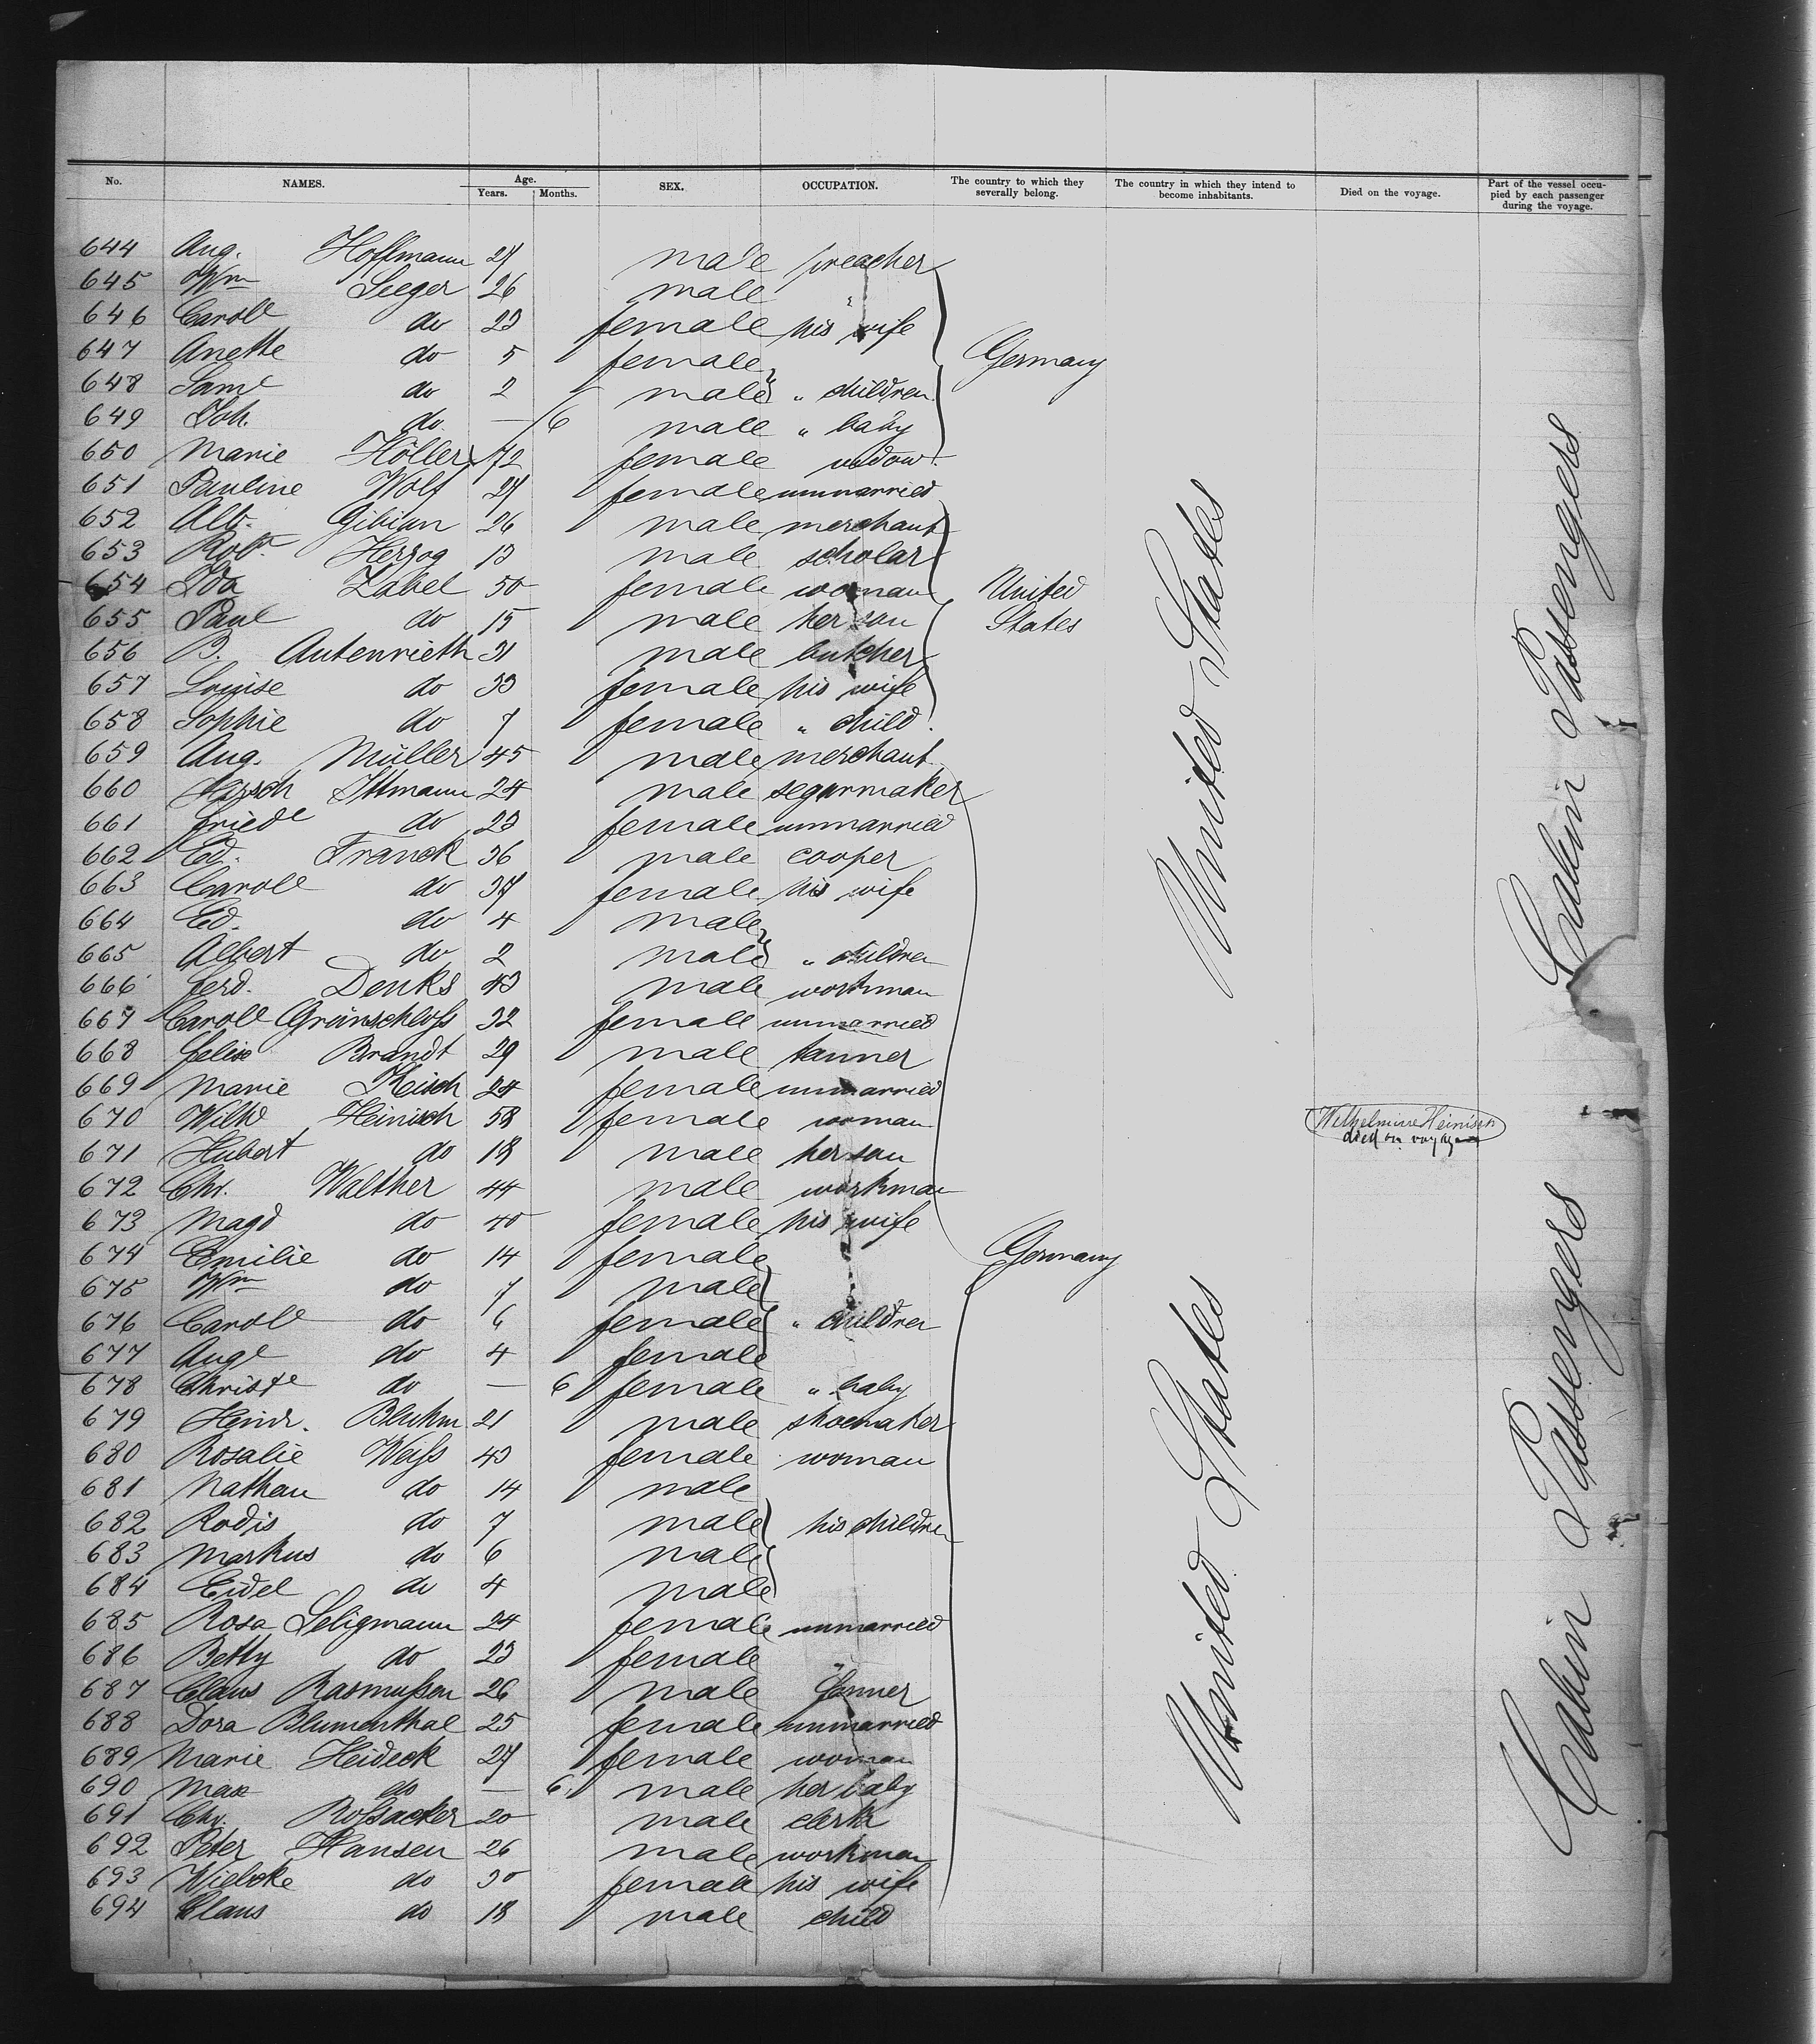 No. NAMES. Age. Years. Months. SEX. OCCUPATION. The country to which they severally belong. The country in which they intend to become inhabitants. Died on the voyage. Part of the vessel occupied by each passenger during the voyage.
644 Aug. Hoffmann 27 male preacher
645 Wm Seeger 26 male "
646 Carole do 23 female his wife
647 Anette do 5 female Germany
648 Saml do 2 male " children
649 Joh. do — 6 male " baby
650 Marie Höller 72 female widow
651 Pauline Wolf 27 female unmarried
652 Alb. Gibian 26 male merchant
653 Robt Herzog 13 male scholar
654 Ida Zabel 50 female woman United
655 Paul do 15 male her son States
656 B. Autenrieth 31 male butcher
657 Louise do 33 female his wife
658 Sophie do 7 female " child
659 Aug. Müller 45 male merchant
660 Ittmann 24 male segarmaker
661 Friede do 23 female unmarried
662 Ed. Franck 36 male cooper
663 Carole do 37 female his wife
664 Ed. do 4 male
665 Albert do 2 male " children
666 Ferd. Denks 43 male workman
667 Carole Grünschloss 32 female unmarried
668 Felix Brandt 29 male tanner
669 Marie Reisch 24 female unmarried
670 Wilhe Heinisch 58 female woman Wilhelmine Heinisch died on voyage
671 Hubert do 18 male her son
672 Chr. Walther 44 male workman
673 Magd do 40 female his wife
674 Emilie do 14 female Germany
675 Wm do 7 male
676 Carole do 6 female " children
677 Auge do 4 female
678 Christe do — 6 female " baby
679 Heinr. Bluhm 21 male shoemaker
680 Rosalie Weiss 43 female woman
681 Nathan do 14 male
682 Rodis do 7 male his children
683 Markus do 6 male
684 Eidel do 4 male
685 Rosa Seligmann 24 female unmarried
686 Betty do 23 female "
687 Claus Rasmussen 26 male farmer
688 Dora Blumenthal 25 female unmarried
689 Marie Heideck 27 female woman
690 Max do — 6 male her baby
691 Chr. Rossacker 20 male clerk
692 Peter Hansen 26 male workman
693 Wiebke do 30 female his wife
694 Claus do 18 male child
United States
United States
Cabin Passengers
Cabin Passengers